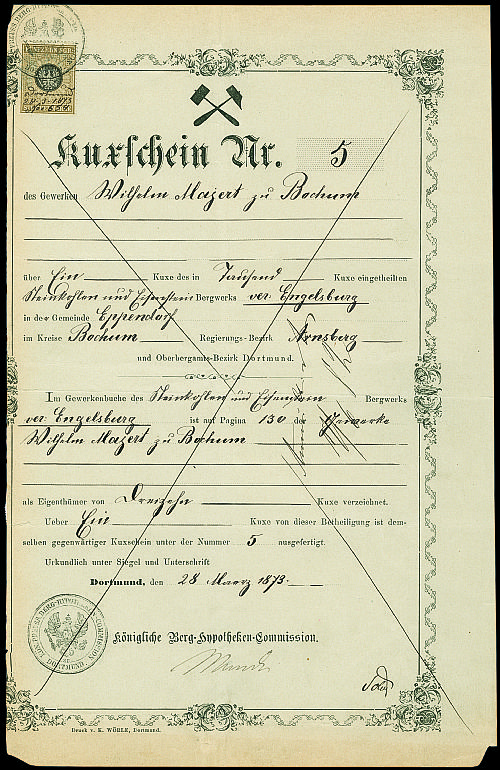 Kuxschein Nr. 5
des Gewerken Wilhelm Mazert zu Bochum
über Ein Kuxe des in Tausend Kuxe eingetheilten
Steinkohlen und Eisenstein Bergwerks ver. Engelsburg
in der Gemeinde Eppendorf
im Kreise Bochum Regierungs-Bezirk Arnsberg
und Oberbergamts-Bezirk Dortmund.
Im Gewerkenbuche des Steinkohlen und Eisenstein Bergwerks
ver. Engelsburg ist auf Pagina 130 der Gewerke
Wilhelm Mazert zu Bochum
als Eigenthümer von Dreizehn Kuxe verzeichnet.
Ueber Ein Kuxe von dieser Betheiligung ist dem-
selben gegenwärtiger Kuxschein unter der Nummer 5 ausgefertigt.
Urkundlich unter Siegel und Unterschrift
Dortmund, den 28 Maerz 1873.
Königliche Berg-Hypotheken-Commission.
Druck v. K. WÖHLE, Dortmund.